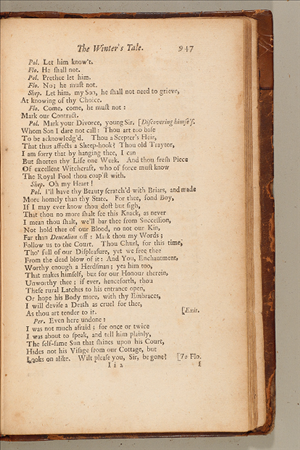 The Winter's Tale. 937
Pol. Let him know't.
Flo. He shall not.
Pol. Prethee let him.
Flo. No; he must not.
Shep. Let him, my Son, he shall not need to grieve,
At knowing of thy Choice.
Flo. Come, come, he must not:
Mark our Contract.
Pol. Mark your Divorce, young Sir, [Discovering himself.
Whom Son I dare not call: Thou art too base
To be acknowledg'd. Thou a Scepter's Heir,
That thus affects a Sheep-hook! Thou old Traytor,
I am sorry that by hanging thee, I can
But shorten thy Life one Week. And thou fresh Piece
Of excellent Witchcraft, who of force must know
The Royal Fool thou coap'st with.
Shep. Oh my Heart!
Pol. I'll have thy Beauty scratch'd with Briars, and made
More homely than thy State. For thee, fond Boy,
If I may ever know thou dost but sigh,
That thou no more shalt see this Knack, as never
I mean thou shalt, we'll bar thee from Succession,
Not hold thee of our Blood, no not our Kin,
Far than Deucalion off: Mark thou my Words:
Follow us to the Court. Thou Churl, for this time,
Tho' full of our Displeasure, yet we free thee
From the dead blow of it: And You, Enchantment,
Worthy enough a Herdsman; yea him too,
That makes himself, but for our Honour therein,
Unworthy thee; if ever, henceforth, thou
These rural Latches to his entrance open,
Or hope his Body more, with thy Embraces,
I will devise a Death as cruel for thee,
As thou art tender to it. [Exit.
Per. Even here undone:
I was not much afraid; for once or twice
I was about to speak, and tell him plainly,
The self-same Sun that shines upon his Court,
Hides not his Visage from our Cottage, but
Looks on alike. Wilt please you, Sir, be gone? [To Flo.
I i 2 I